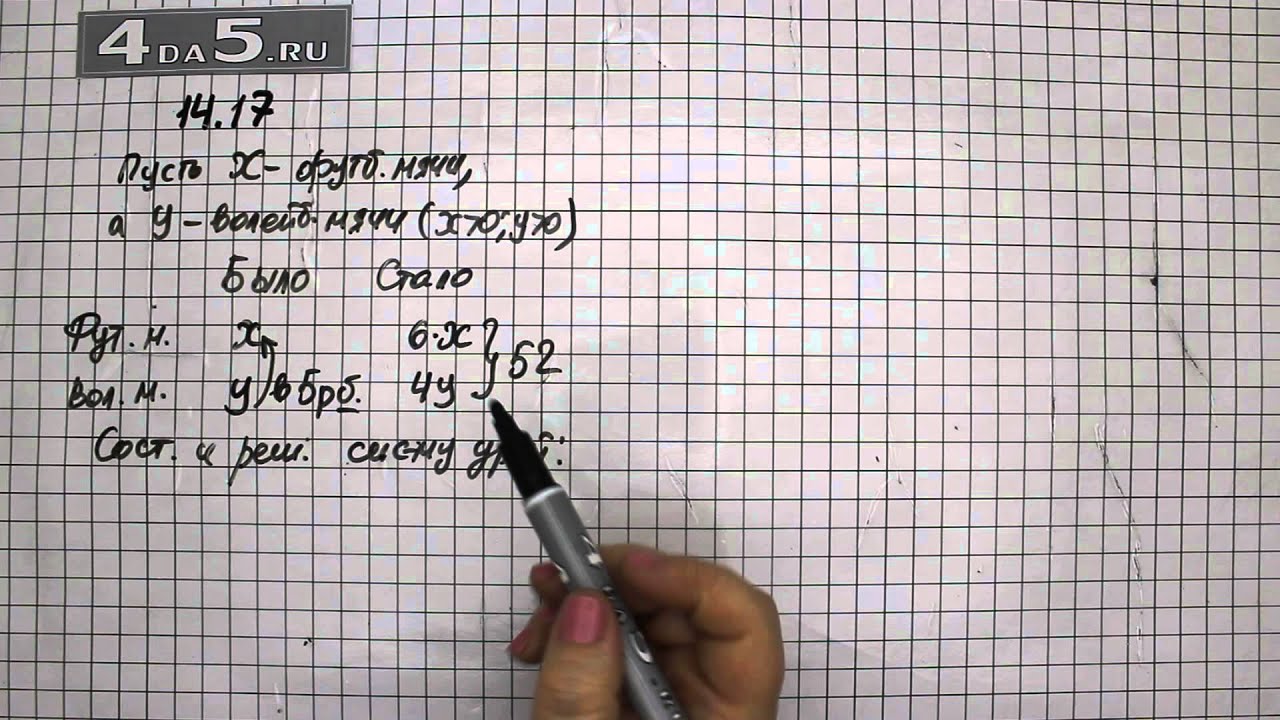 4DA5.RU
14.17
Пусть х - футб. мячи,
а у - волейб. мячи (х>0; у>0)
Было Стало
Фут. м. х 6·х } 52
Вол. м. у в 5р б. 4у
Сост. и реш. сис-му